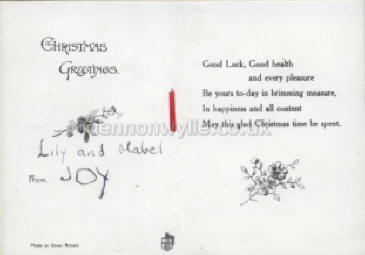 CHRISTMAS
GREETINGS.
Lily and Mabel
From JOY
Made in Great Britain
Good Luck, Good health
and every pleasure
Be yours to-day in brimming measure,
In happiness and all content
May this glad Christmas time be spent.